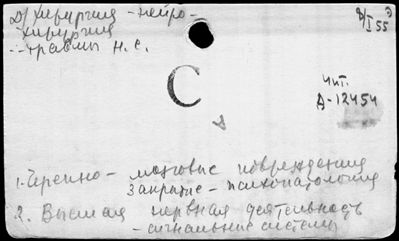 Д/ хирургия - нейро-
хирургия
травмы н. с.
8/I 55
С
чит.
А-12454
1. Черепно - мозговые повреждения
закрытые - психопатология
2. Высшая нервная деятельность
- сигнальные системы